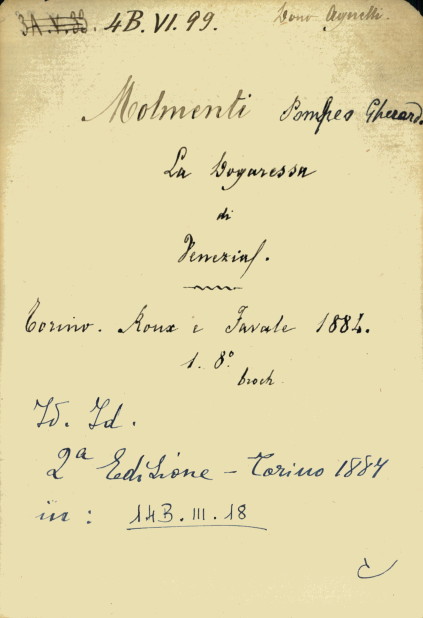 3A.V.33. 4B.VI.99. Dono Agnelli.
Molmenti Pompeo Gherard.
La Dogaressa
di
Venezia.
Torino. Roux e Favale 1884.
1. 8º
broch
Id. Id.
2ª Edizione - Torino 1887
in: 14B.III.18